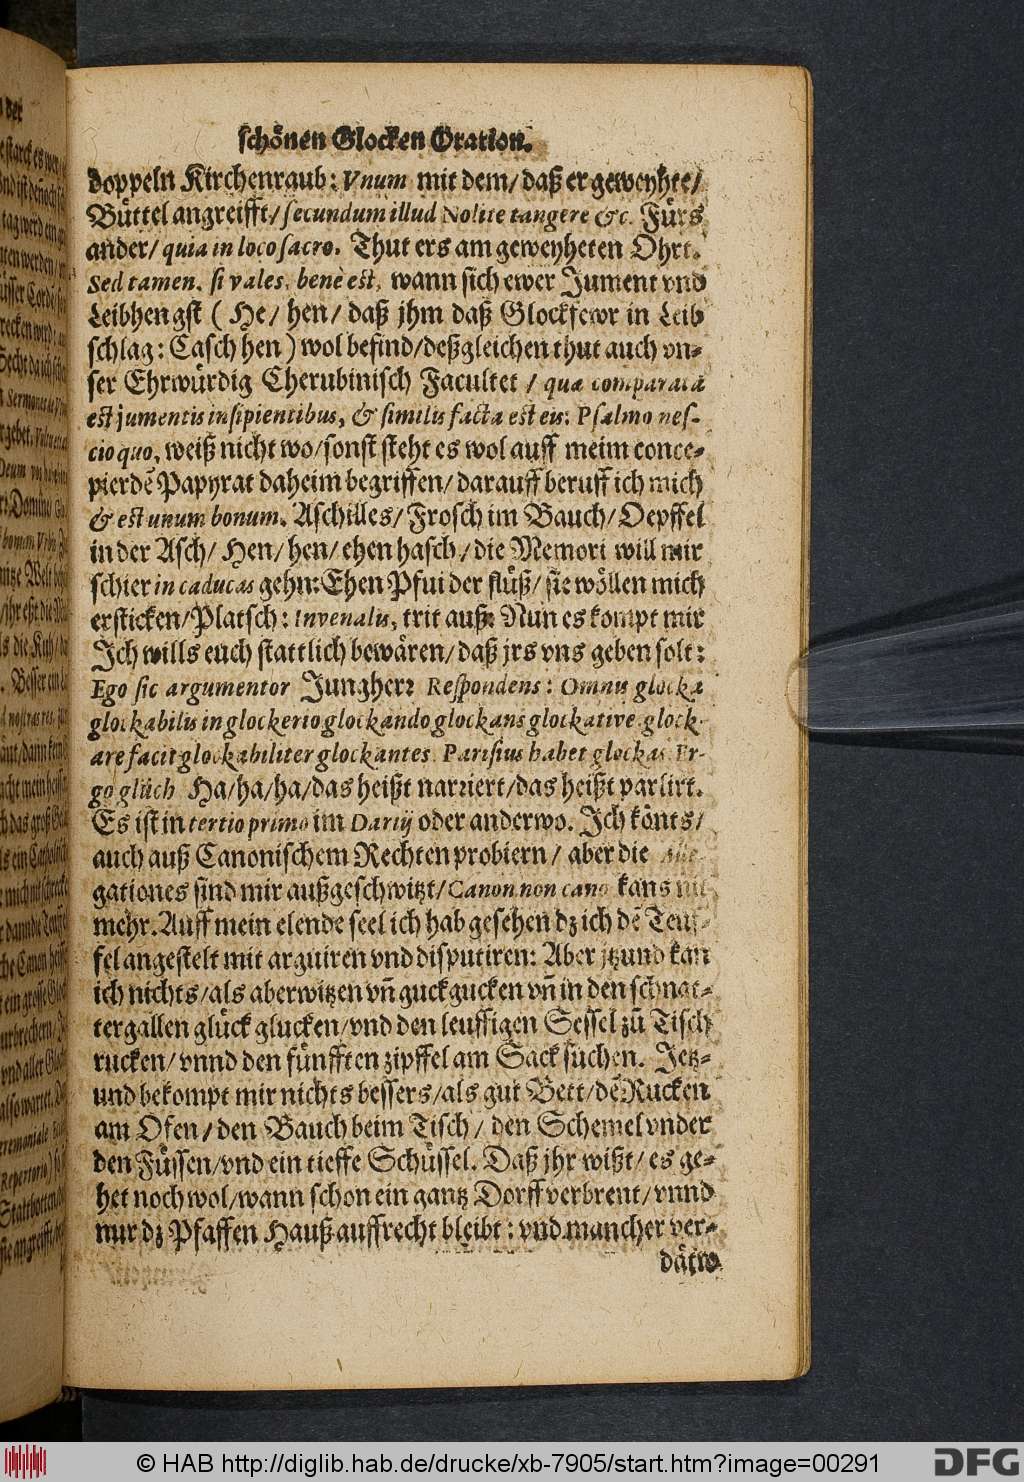 schönen Glocken Oration.
doppeln Kirchenraub: Vnum mit dem/ daß er geweyhte/
Büttel angreifft/ secundum illud Nolite tangere &c. Fürs
ander/ quia in loco sacro. Thut ers am geweyheten Ohrt.
Sed tamen. si vales, benè est, wann sich ewer Jument vnd
Leibhengst ( He/ hen/ daß jhm daß Glockfewr in Leib
schlag: Casch hen ) wol befind/ deßgleichen thut auch vn-
ser Ehrwürdig Cherubinisch Facultet / quæ comparata
est jumentis insipientibus, & similis facta est eis: Psalmo nes-
cio quo, weiß nicht wo/ sonst steht es wol auff meim conce-
pierdē Papyrat daheim begriffen/ darauff beruff ich mich
& est unum bonum. Aschilles/ Frosch im Bauch/ Oepffel
in der Asch/ Hen/ hen/ ehen hasch/ die Memori will mir
schier in caducas gehn: Ehen Pfui der flüß/ sie wöllen mich
ersticken/ Platsch: Invenalis, trit auß: Nun es kompt mir
Ich wills euch stattlich bewären/ daß jrs vns geben solt:
Ego sic argumentor Jungherr Respondens: Omnis glocka
glockabilis in glockerio glockando glockans glockative glock-
are facit glockabiliter glockantes. Parisius habet glockas. Er-
go glüch Ha/ ha/ ha/ das heißt narriert/ das heißt parlirt.
Es ist in tertio primo im Darij oder anderwo. Ich könts/
auch auß Canonischem Rechten probiern/ aber die Alle-
gationes sind mir außgeschwitzt/ Canon non cano kans nit
mehr. Auff mein elende seel ich hab gesehen dz ich dē Teuf-
fel angestelt mit arguiren vnd disputiren: Aber jtzund kan
ich nichts/ als aberwitzen vn̄ guckgucken vn̄ in den schnat-
tergallen glück glucken/ vnd den leuffigen Sessel zū Tisch
rucken/ vnnd den fünfften zipffel am Sack suchen. Jetz-
und bekompt mir nichts bessers/ als gut Bett/ dē Rucken
am Ofen/ den Bauch beim Tisch/ den Schemel vnder
den Füssen/ vnd ein tieffe Schüssel. Daß jhr wißt/ es ge-
het noch wol/ wann schon ein gantz Dorff verbrent/ vnnd
nur dz Pfaffen Hauß auffrecht bleibt: vnd mancher ver-
dätw
© HAB http://diglib.hab.de/drucke/xb-7905/start.htm?image=00291
DFG